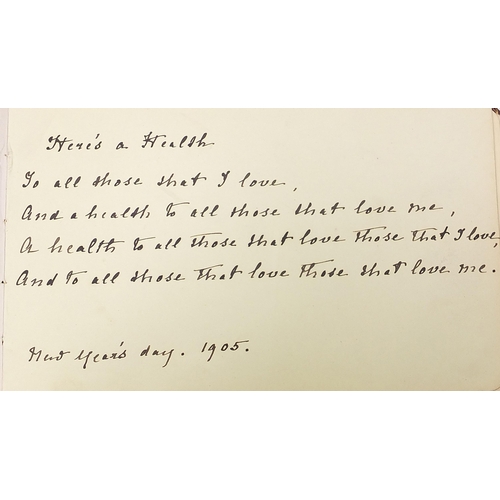 Here's a Health
To all those that I love,
And a health to all those that love me,
A health to all those that love those that I love,
And to all those that love those that love me.
New Year's day. 1905.